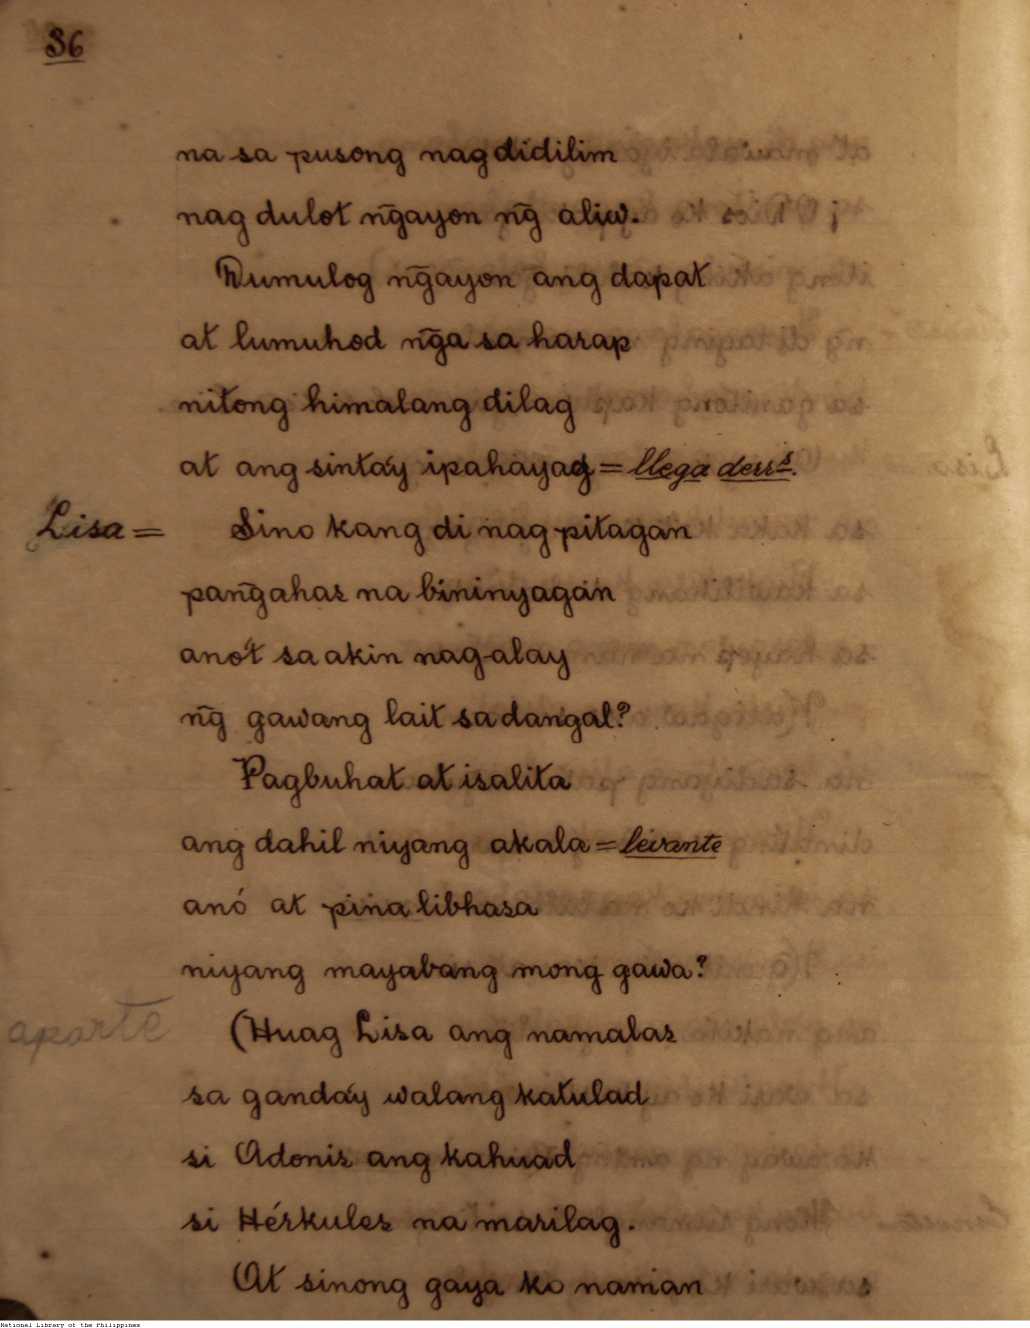 36
na sa pusong nag didilim
nag dulot n̄gayon n̄g aliw.
Dumulog n̄gayon ang dapat
at lumuhod n̄ga sa harap
nitong himalang dilag
at ang sinta'y ipahayag = llega
Lisa = Sino kang di nag pitagan
pan̄gahas na bininyagan
ano't sa akin nag-alay
n̄g gawang lait sa dangal?
Pagbuhat at isalita
ang dahil niyang akala = levante
anó at pina libhasa
niyang mayabang mong gawa?
aparte (Huag Lisa ang namalas
sa ganda'y walang katulad
si Adonis ang kahuad
si Hérkules na marilag.
At sinong gaya ko naman
National Library of the Philippines